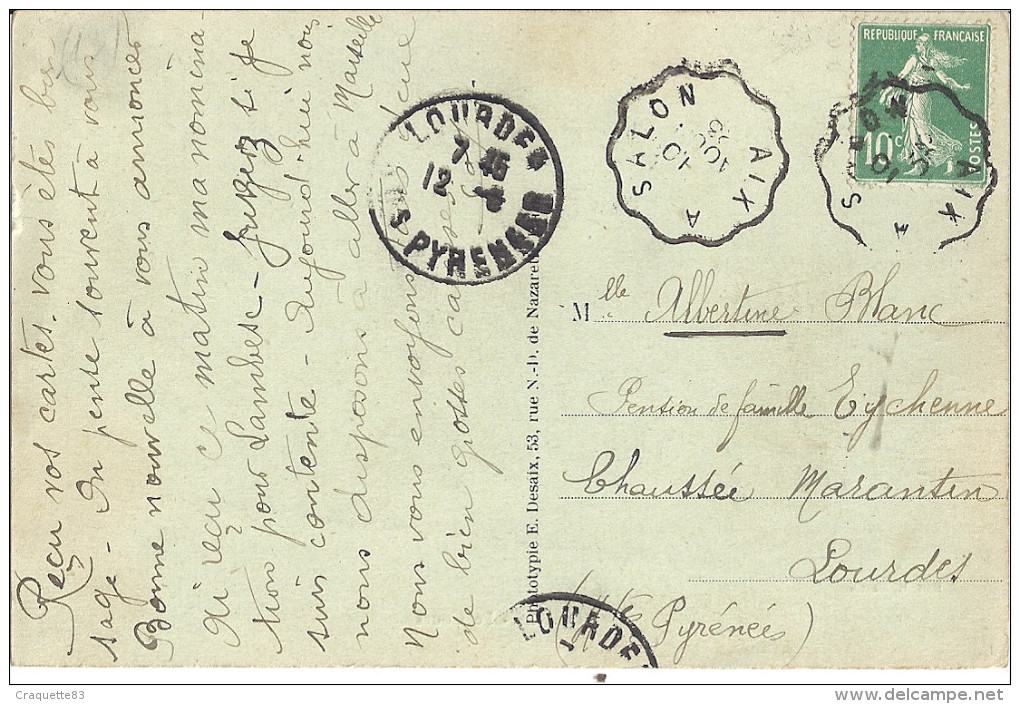 Reçu vos cartes. vous êtes bien
sage. On pense souvent à vous
Bonne nouvelle à vous annoncer
ai reçu ce matin ma nomina
tion pour Lambesc - Jugez si je
suis contente - Aujourd'hui nous
nous disposons à aller à Marseille
Nous vous envoyons
de bien grosses caresses
LOURDES
7 45
12
PYRENEES
SALON A AIX
10
SALON A AIX
10
REPUBLIQUE FRANÇAISE
10c
POSTES
Phototypie E. Desaix, 53, rue N.-D. de Nazaret
Mlle Albertine Blanc
Pension de famille Eychenne
Chaussée Marantin
Lourdes
(Htes Pyrénées)
LOURDES
Craquette83
www.delcampe.net